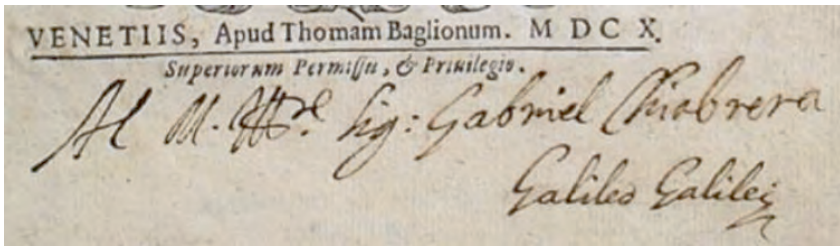 VENETIIS, Apud Thomam Baglionum. M DC X.
Superiorum Permiſſu, & Priuilegio.
Al M. Ill.re Sig: Gabriel Chiabrera
Galileo Galilei